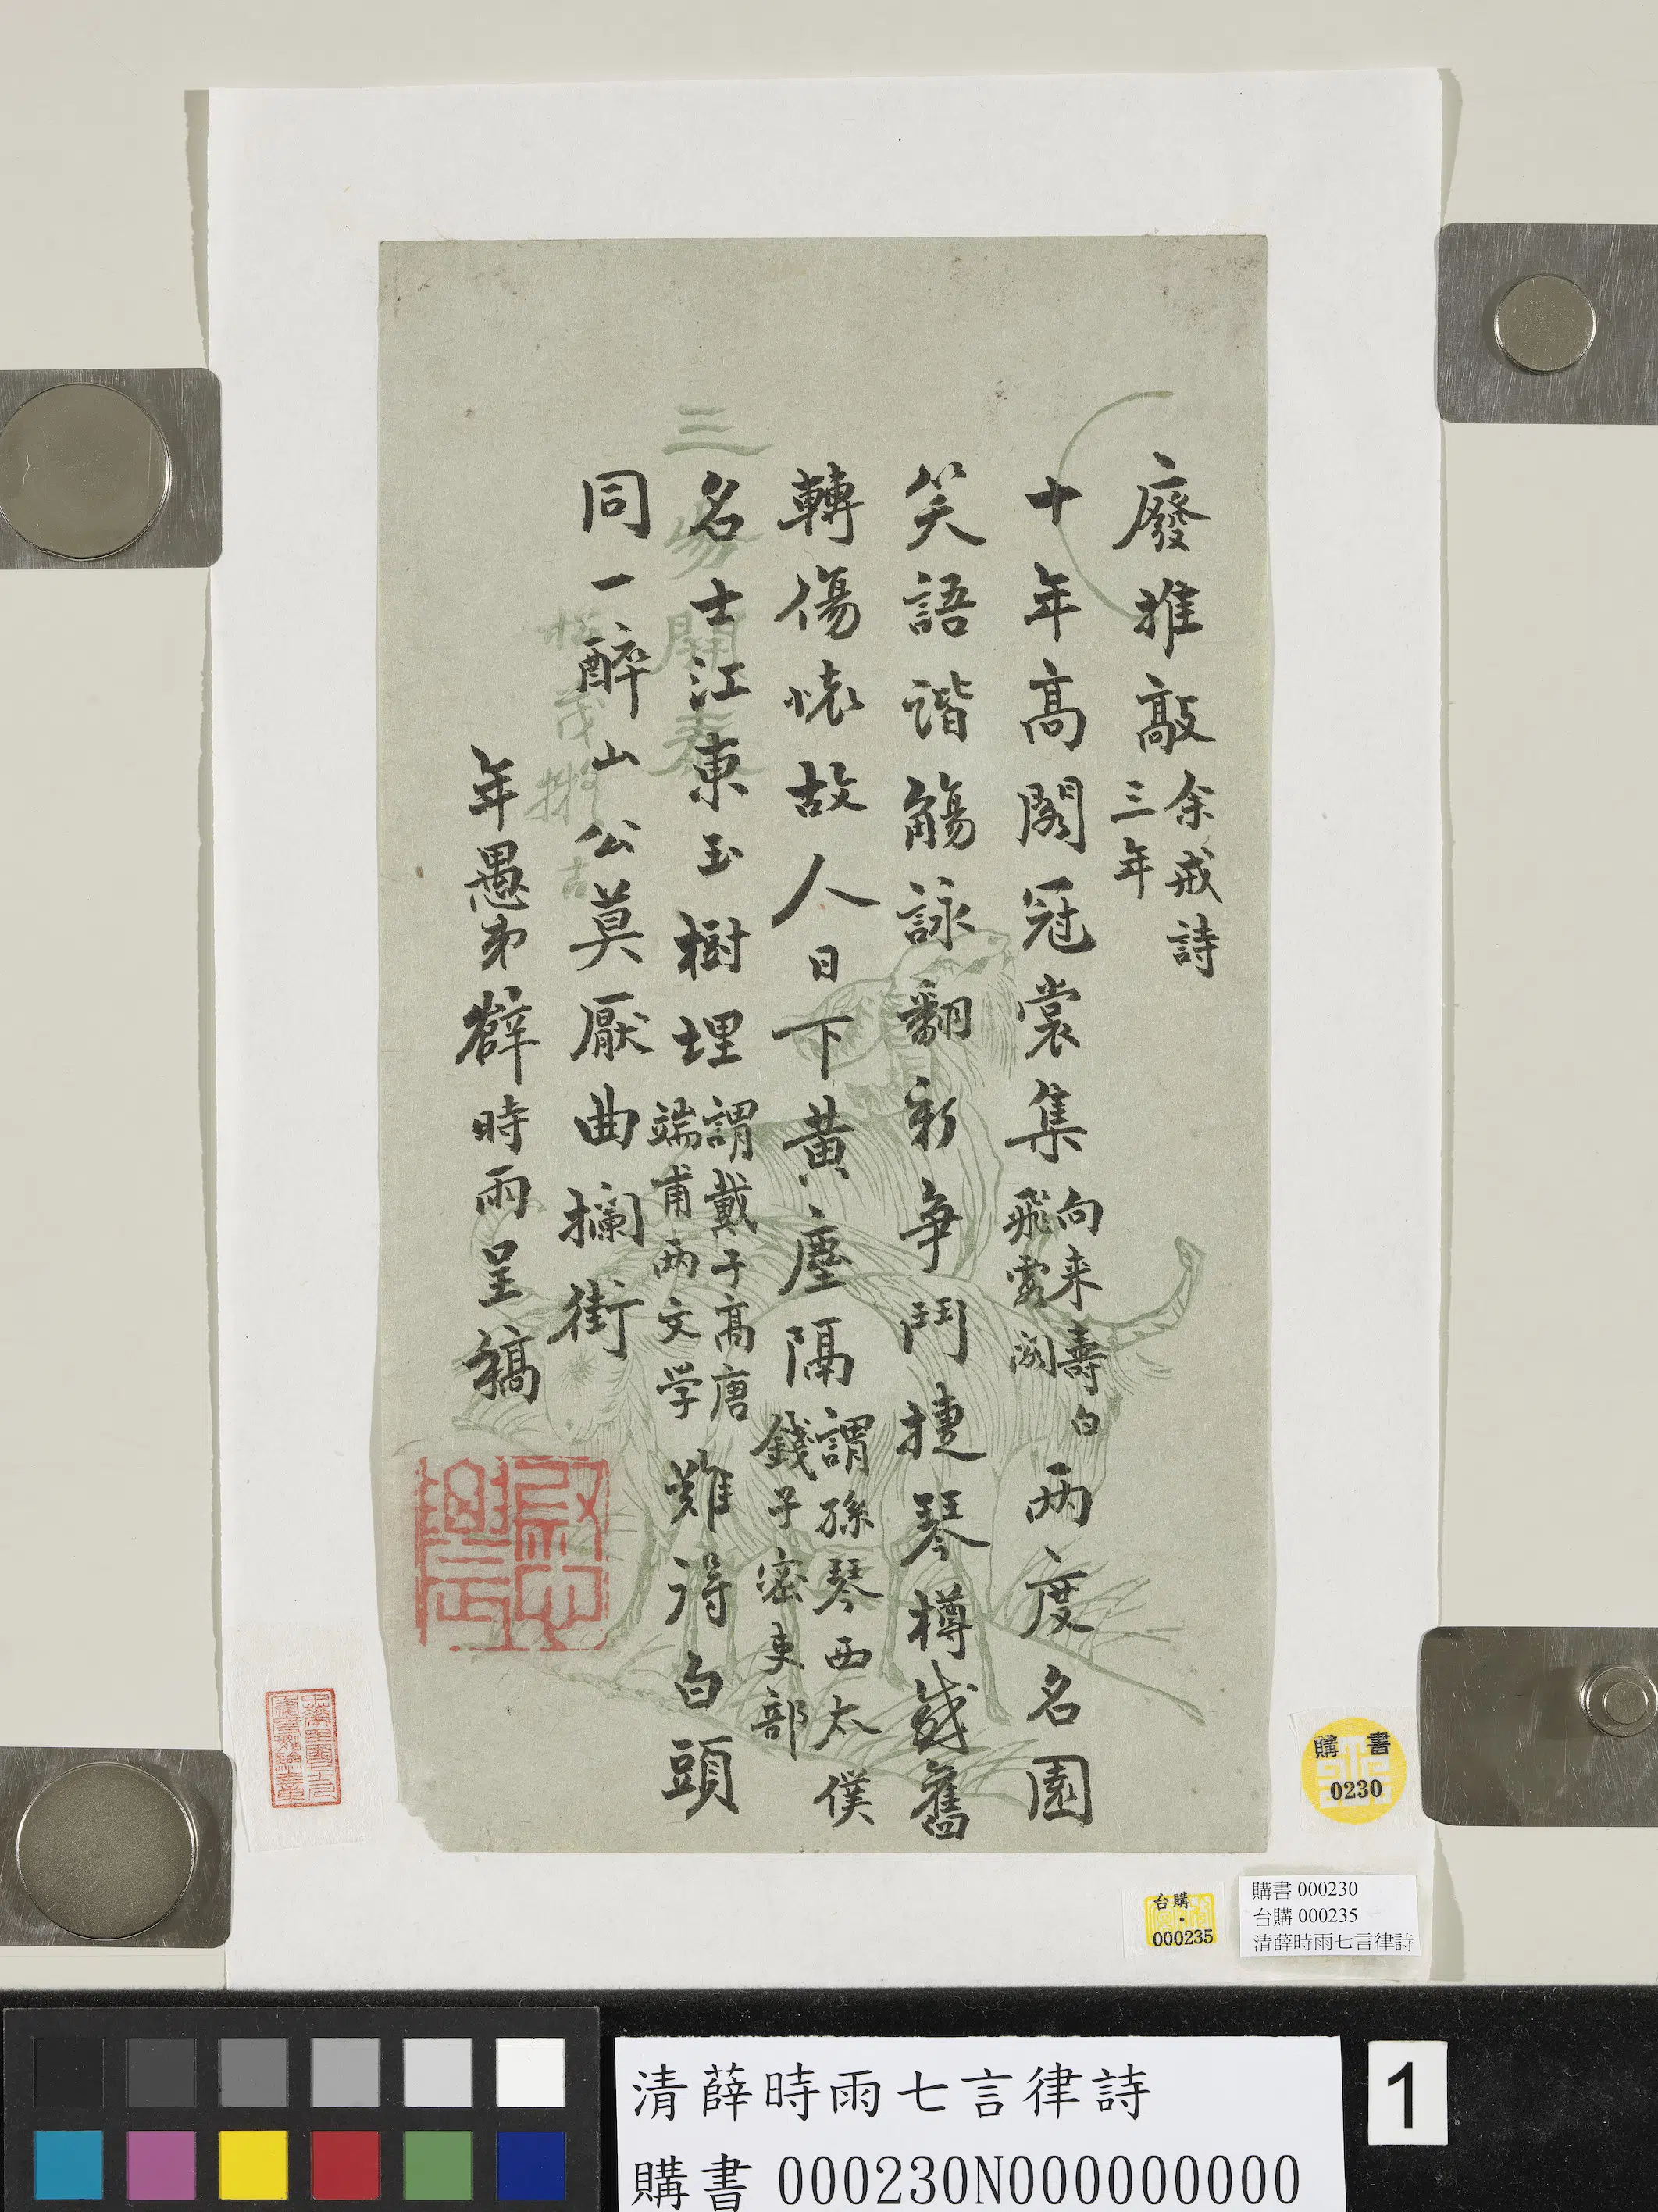 廢推敲余戒詩三年
十年高閣冠裳集向来壽白飛雲閣两度名園
笑語諧觴詠翻新爭鬥捷琴樽感舊
轉傷懷故人日下黃塵隔謂孫琴西太僕錢子密吏部
名士江東玉樹埋謂戴子高唐端甫两文学難得白頭
同一醉山公莫厭曲攔街
年愚弟薛時雨呈稿
三陽開泰
購書
0230
台購
000235
購書 000230
台購 000235
清薛時雨七言律詩
清薛時雨七言律詩
購書 000230N000000000
1